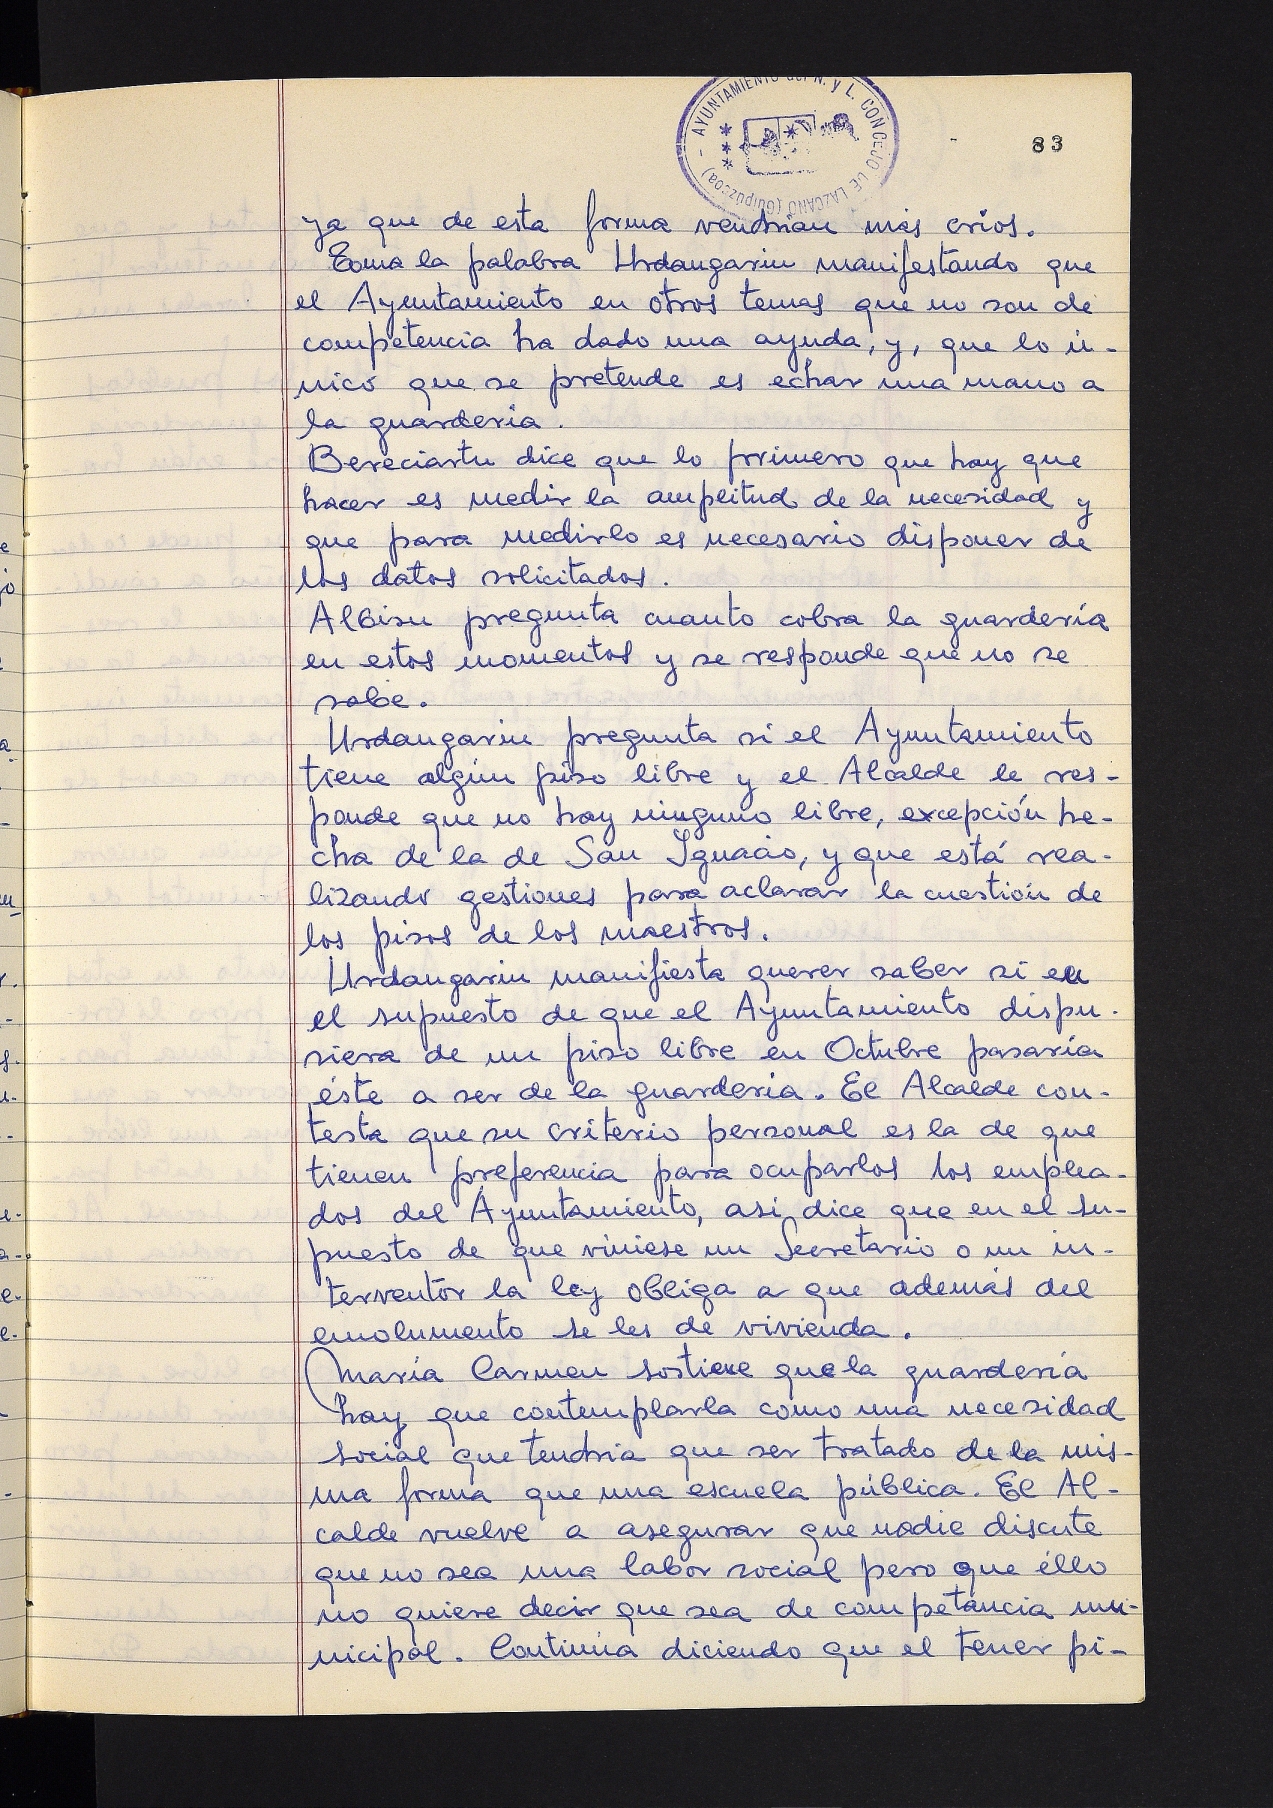 - AYUNTAMIENTO del N. y L. CONCEJO DE LAZCANO (Guipúzcoa)
83
ya que de esta forma vendrían más críos.
Toma la palabra Urdangarin manifestando que
el Ayuntamiento en otros temas que no son de
competencia ha dado una ayuda, y, que lo ú-
nico que se pretende es echar una mano a
la guardería.
Bereciartu dice que lo primero que hay que
hacer es medir la amplitud de la necesidad y
que para medirlo es necesario disponer de
los datos solicitados.
Albisu pregunta cuanto cobra la guardería
en estos momentos y se responde que no se
sabe.
Urdangarin pregunta si el Ayuntamiento
tiene algún piso libre y el Alcalde le res-
ponde que no hay ninguno libre, excepción he-
cha de la de San Ignacio, y que está rea-
lizando gestiones para aclarar la cuestión de
los pisos de los maestros.
Urdangarin manifiesta querer saber si en
el supuesto de que el Ayuntamiento dispu-
siera de un piso libre en Octubre pasaría
éste a ser de la guardería. El Alcalde con-
testa que su criterio personal es la de que
tienen preferencia para ocuparlos los emplea-
dos del Ayuntamiento, asi dice que en el su-
puesto de que viniese un Secretario o un in-
terventor la ley obliga a que además del
emolumento se les de vivienda.
María Carmen sostiene que la guardería
hay que contemplarla como una necesidad
social que tendría que ser tratado de la mis-
ma forma que una escuela pública. El Al-
calde vuelve a asegurar que nadie discute
que no sea una labor social pero que éllo
no quiere decir que sea de competáncia mu-
nicipal. Continúa diciendo que el tener pi-